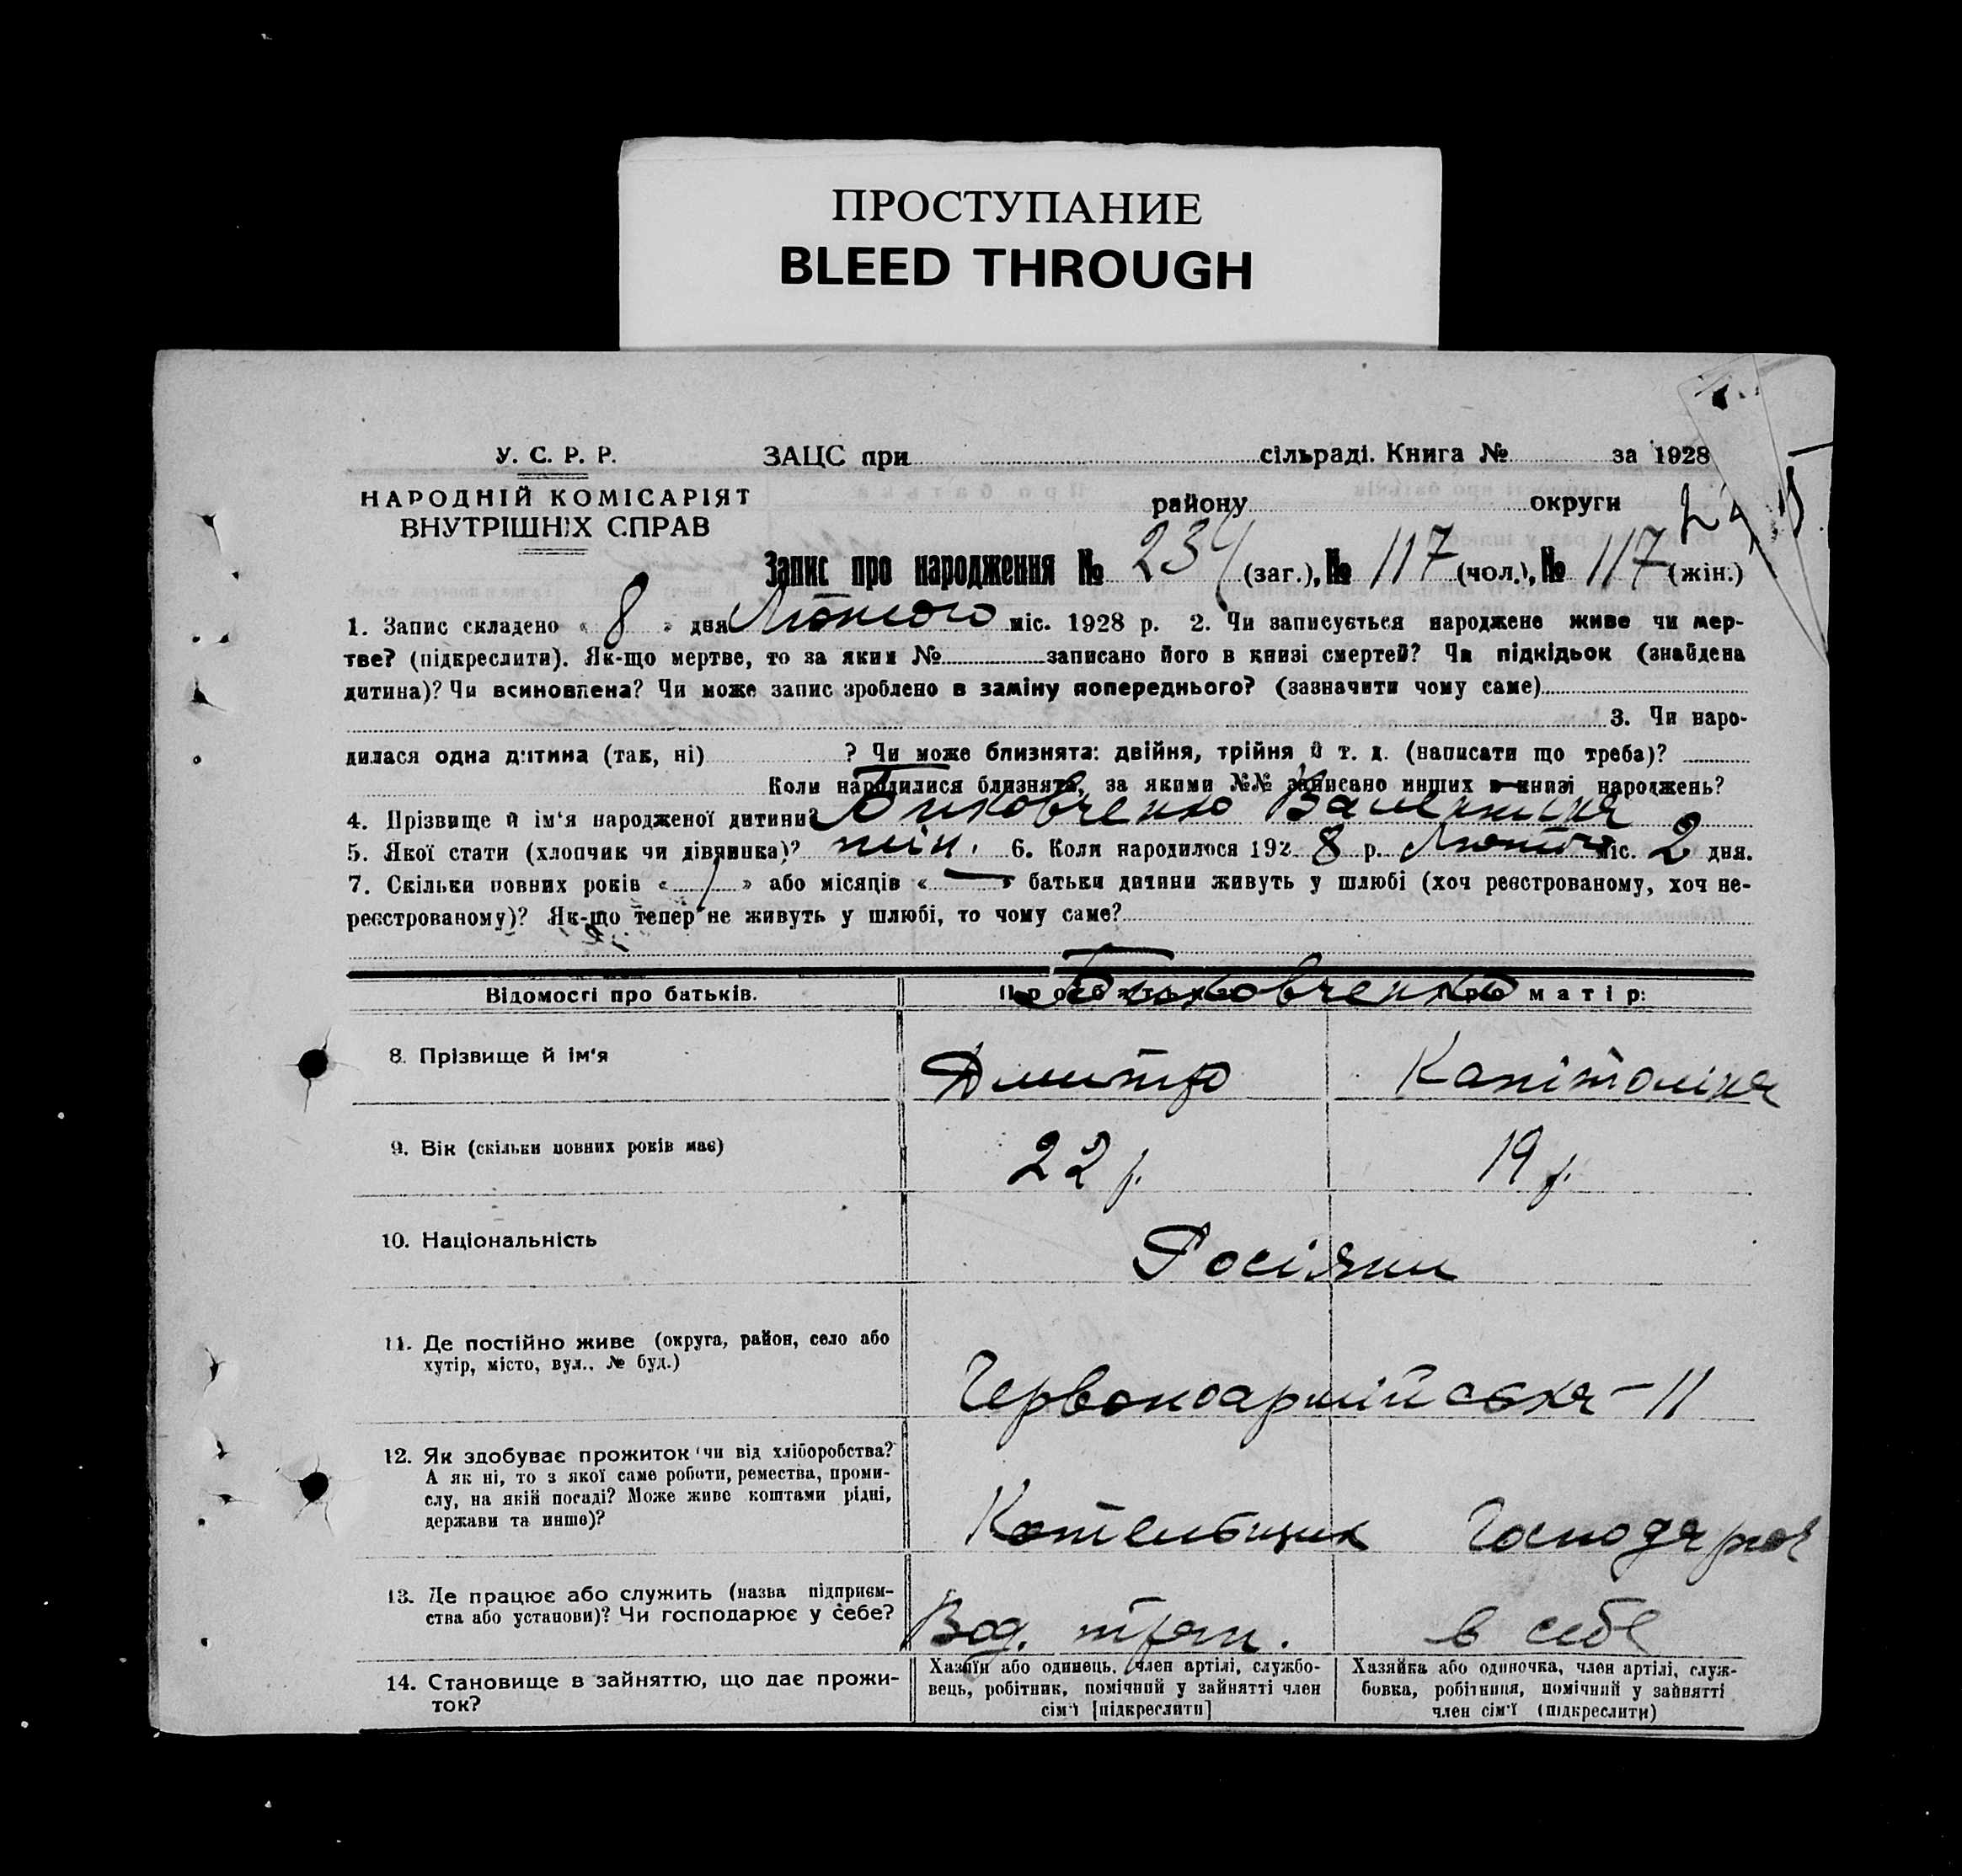 ПРОСТУПАНИЕ
BLEED THROUGH
У. С. Р. Р.
НАРОДНІЙ КОМІСАРІЯТ
ВНУТРІШНІХ СПРАВ
ЗАЦС при сільраді. Книга № за 1928
району округи
Запис про народження № 234 (заг.), № 117 (чол.), № 117 (жін.)
1. Запис складено « 8 » дня Лютого міс. 1928 р. 2. Чи записується народжене живе чи мер-
тве? (підкреслити). Як-що мертве, то за яким № записано його в книзі смертей? Чи підкідьок (знайдена
дитина)? Чи всиновлена? Чи може запис зроблено в заміну попереднього? (зазначити чому саме)
3. Чи наро-
дилася одна дитина (так, ні) ? Чи може близнята: двійня, трійня й т. д. (написати що треба)?
Коли народилися близнята, за якими №№ записано инших в книзі народжень?
4. Прізвище й ім'я народженої дитини? Биковченко Валентина
5. Якої стати (хлопчик чи дівчинка)? жін. 6. Коли народилося 192 8 р. Лютого міс. 2 дня.
7. Скільки повних років « 1 » або місяців « — » батьки дитини живуть у шлюбі (хоч реєстрованому, хоч не-
реєстрованому)? Як-що тепер не живуть у шлюбі, то чому саме?
Відомості про батьків. Про батька Про матір:
Биковченко
8. Прізвище й ім'я Дмитро Капітоліна
9. Вік (скільки повних років має) 22 р. 19 р.
10. Національність Росіяни
11. Де постійно живе (округа, район, село або
хутір, місто, вул., № буд.)
Червоноармійська – 11
12. Як здобуває прожиток (чи від хліборобства?
А як ні, то з якої саме роботи, ремества, проми-
слу, на якій посаді? Може живе коштами рідні,
держави та инше)?
Котельщик Господарюя
13. Де працює або служить (назва підприєм-
ства або установи)? Чи господарює у себе?
Вод. тран. в себе
14. Становище в зайняттю, що дає прожи-
ток?
Хазяїн або одинець, член артілі, службо-
вець, робітник, помічний у зайнятті член
сім'ї [підкреслити]
Хазяйка або одиночка, член артілі, служ-
бовка, робітниця, помічний у зайнятті
член сім'ї (підкреслити)